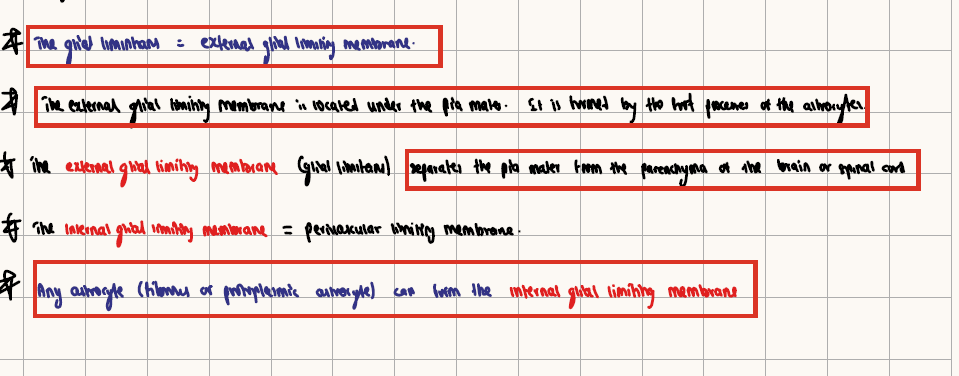 The glial limintans = external glial limiting membrane.
The external glial limiting membrane is located under the pia mater. It is formed by the foot processes of the astrocytes.
The external glial limiting membrane (glial limitans) separates the pia mater from the parenchyma of the brain or spinal cord
The internal glial limiting membrane = perivascular limiting membrane.
Any astrocyte (fibrous or protoplasmic astrocyte) can form the internal glial limiting membrane